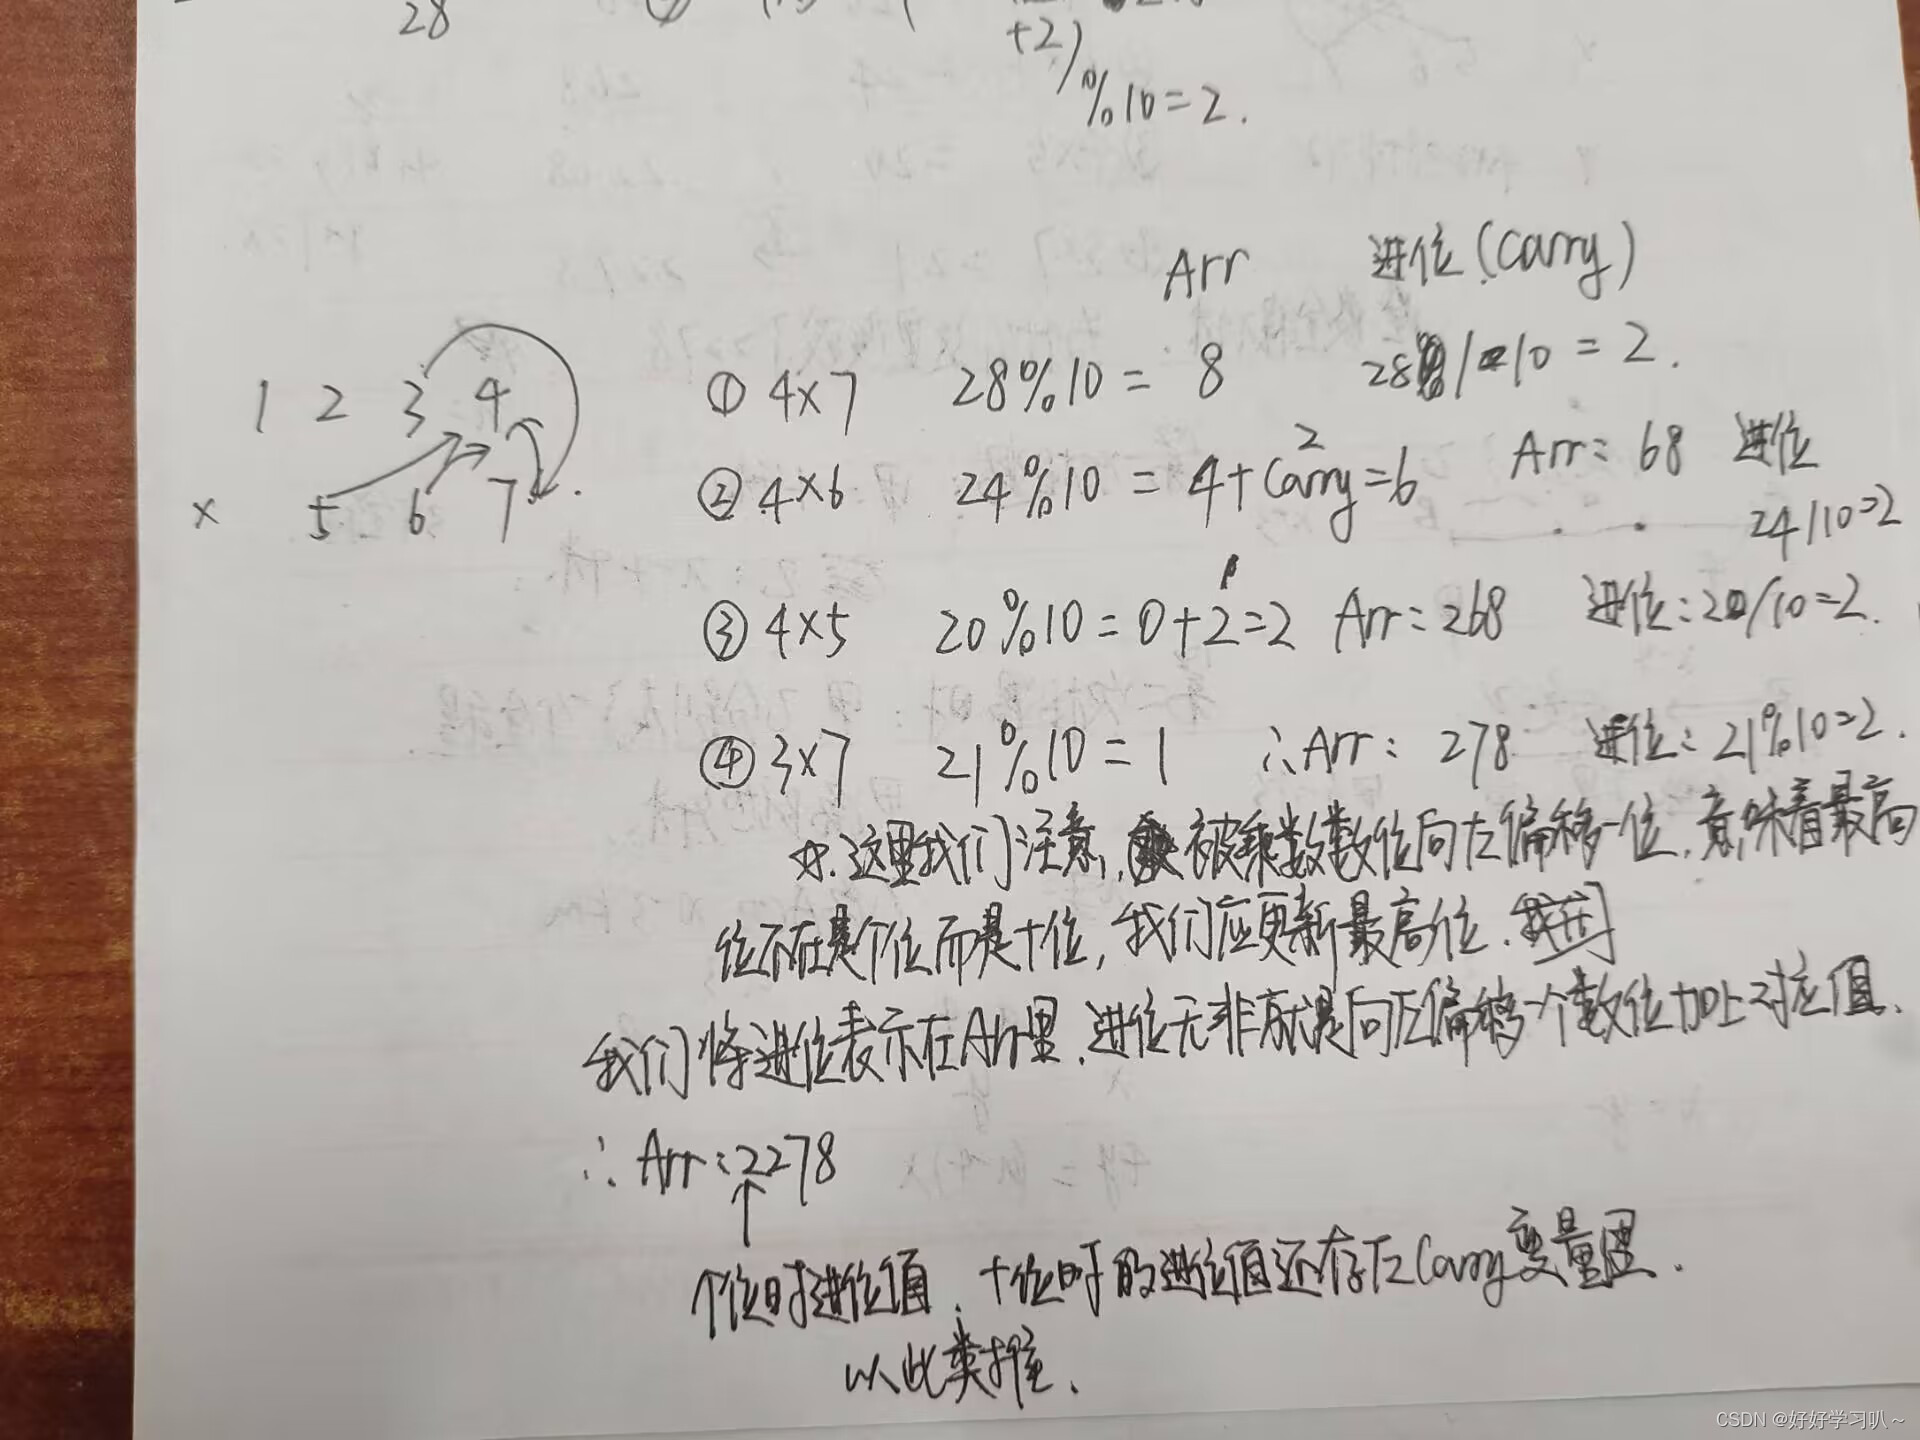 28
+2)
%10=2.
Arr 进位(Carry)
1 2 3 4
× 5 6 7
① 4×7 28%10 = 8 28/10 = 2.
② 4×6 24%10 = 4+Carry=6 Arr: 68 进位
2
24/10=2
③ 4×5 20%10=0+2=2 Arr:268 进位:20/10=2.
④ 3×7 21%10=1 ∴Arr: 278 进位:21%10=2.
☆.这里我们注意,被乘数数位向左偏移一位,意味着最高
位不在是个位而是十位,我们应更新最高位.
我们将进位表示在Arr里,进位无非就是向左偏移一个数位加上对应值.
∴Arr:2278
↑
个位时进位值,十位时的进位值还存在Carry变量里.
以此类推.
CSDN @好好学习叭~